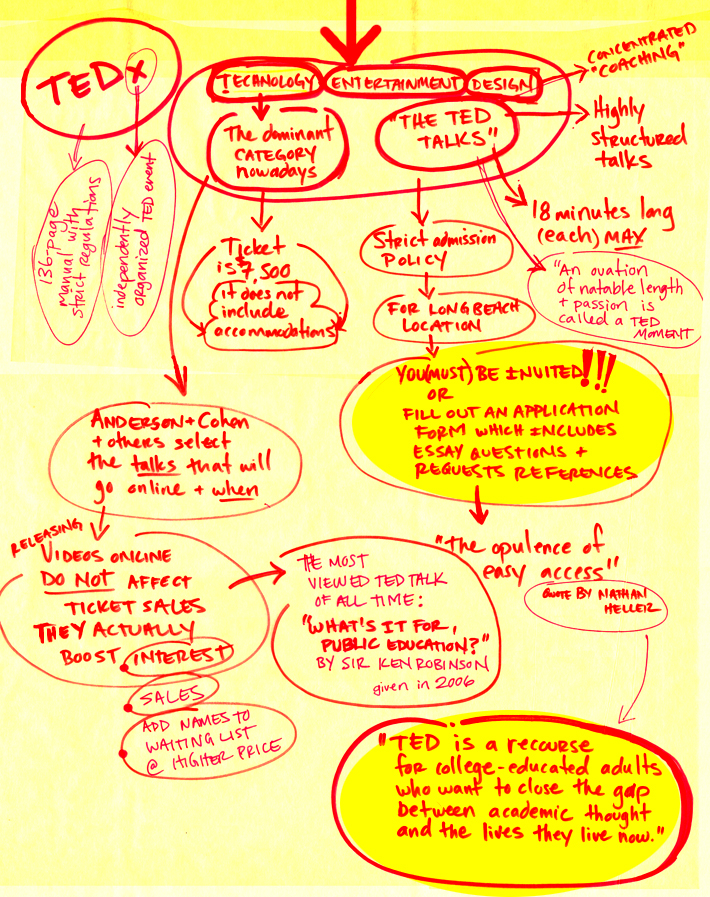 TEDx
136-page
manual with
strict regulations
independently
organized TED event
TECHNOLOGY
ENTERTAINMENT
DESIGN
CONCENTRATED
"COACHING"
The dominant
CATEGORY
nowadays
"THE TED
TALKS"
Highly
structured
talks
18 minutes long
(each) MAX
"An ovation
of notable length
+ passion is
called a TED
MOMENT
Ticket
is $7,500
it does not
include
accommodations
Strict admission
POLICY
FOR LONG BEACH
LOCATION
YOU (MUST) BE INVITED!!!
OR
FILL OUT AN APPLICATION
FORM WHICH INCLUDES
ESSAY QUESTIONS +
REQUESTS REFERENCES
ANDERSON + Cohen
+ others select
the talks that will
go online + when
RELEASING
VIDEOS ONLINE
DO NOT AFFECT
TICKET SALES
THEY ACTUALLY
BOOST INTEREST
SALES
ADD NAMES TO
WAITING LIST
@ HIGHER PRICE
THE MOST
VIEWED TED TALK
OF ALL TIME:
"WHAT'S IT FOR,
PUBLIC EDUCATION?"
BY SIR KEN ROBINSON
given in 2006
"The opulence of
easy access"
QUOTE BY NATHAN
HELLER
"TED is a recourse
for college-educated adults
who want to close the gap
between academic thought
and the lives they live now."